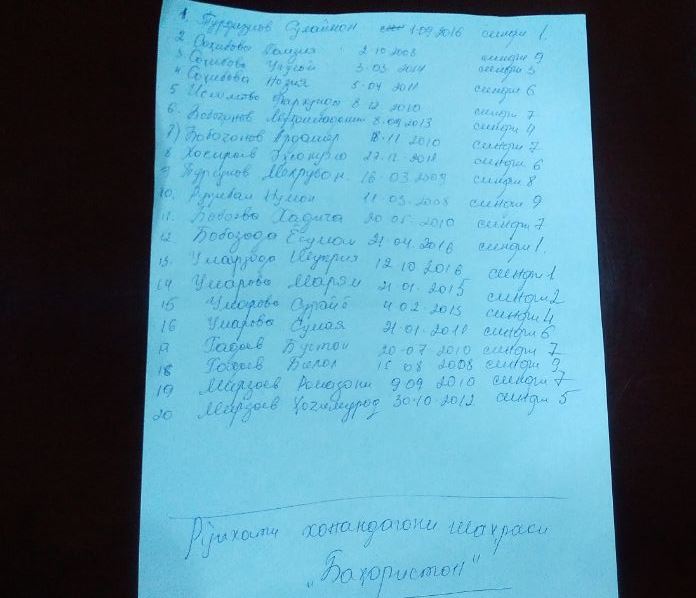 1. Турдизулов Сулаймон 1.09.2016 синфи 1.
2 Соҳибова Фамзия 2.10 2008 синфи 9
3 Соҳибова 3.03.2014 синфи 3
4 Соҳибова Нозия 5.04 2011 синфи 6
5 Фархунда 8.12.2010 синфи 7
6. Бобоҷонов 8.09 2013 синфи 4
7) Бобоҷонов 18.11 2010 синфи 7
8 27.12.2011 синфи 6
9 Турсунов Меҳрубон 16.03.2009 синфи 8
10. Нуъмон 11.03.2008 синфи 9
11. Бобоева Хадича 20.05.2010 синфи 7
12 Бобозода Есуман 21.04 2016 синфи 1.
13. Умарзода Шукрия 12 10 2016 синфи 1
14 Умарова Марям 21.01.2015 синфи 2
15 Умарова 4.02.2013 синфи 4
16 Умарова Сумая 21.01.2011 синфи 6
17 Гадоев Бустон 20.07 2010 синфи 7
18 Гадоев Билол 15 08 2008 синфи 9
19 Мирзоев Рамазони 9 09 2010 синфи 7
20 Мирзоев Ҳоҷимурод 30.10.2012 синфи 5
Рӯйхати хонандагони шаҳраки
„Баҳористон"